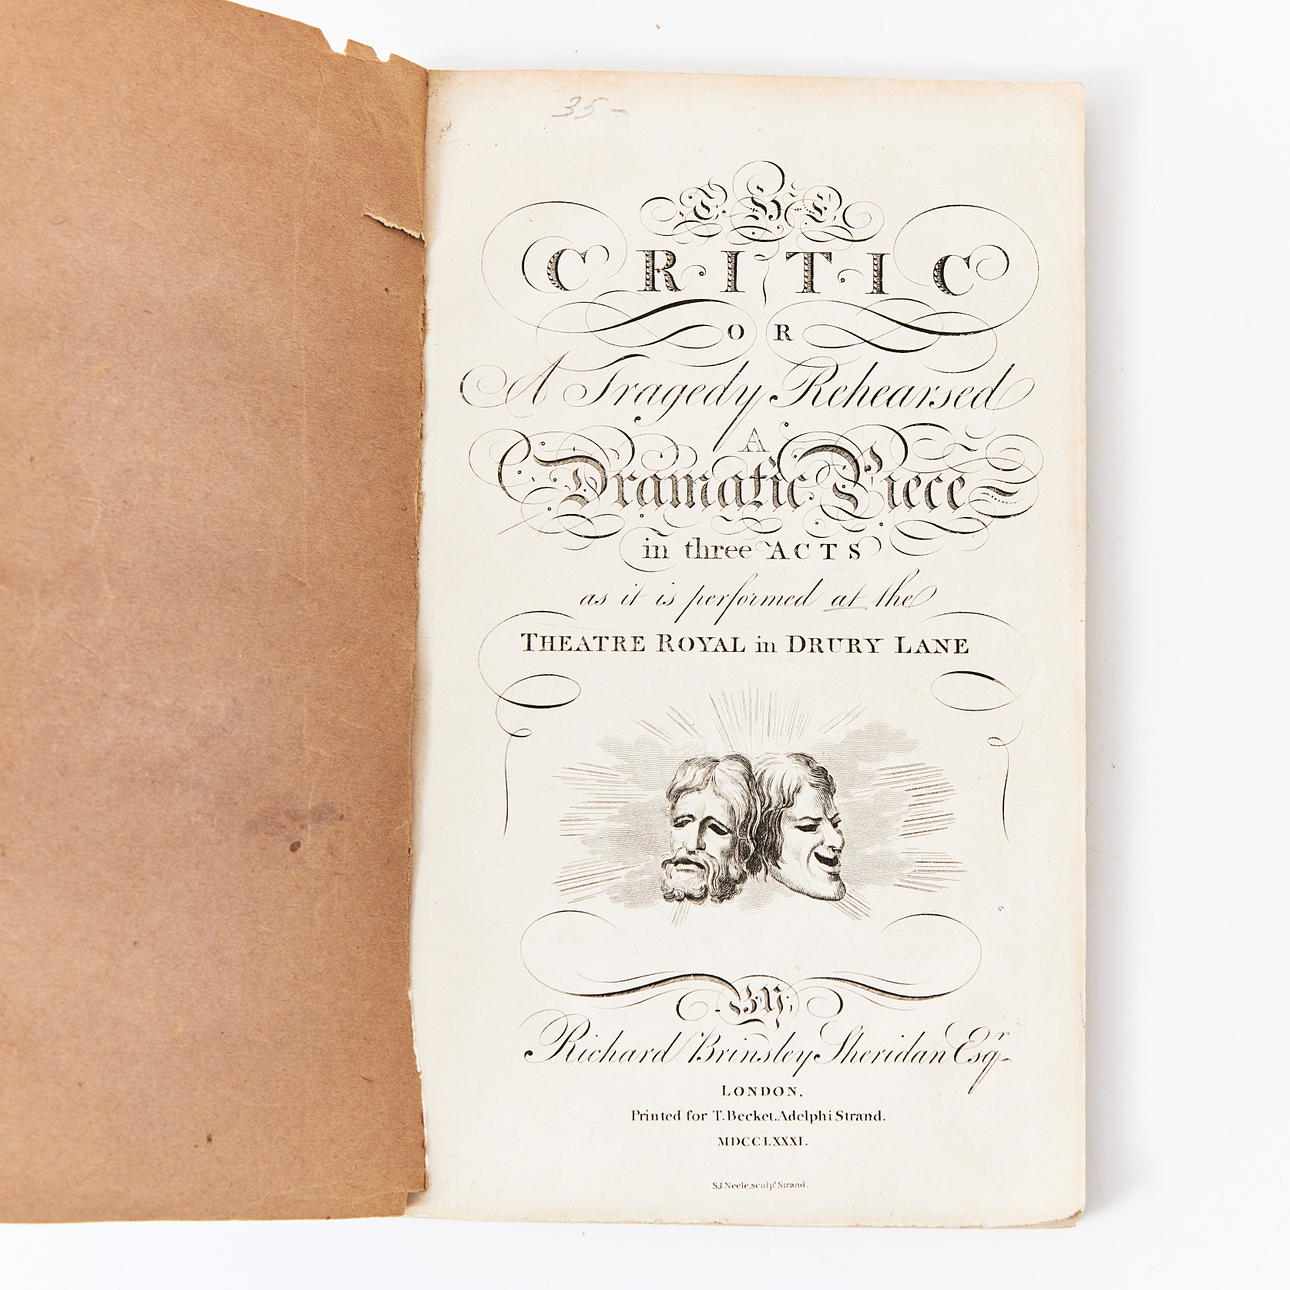 35-
THE
CRITIC
OR
A Tragedy Rehearsed
A
Dramatic Piece
in three ACTS
as it is performed at the
THEATRE ROYAL in DRURY LANE
BY
Richard Brinsley Sheridan Esqr.
LONDON,
Printed for T. Becket. Adelphi Strand.
MDCCLXXXI.
S.J. Neele, sculpt. Strand.